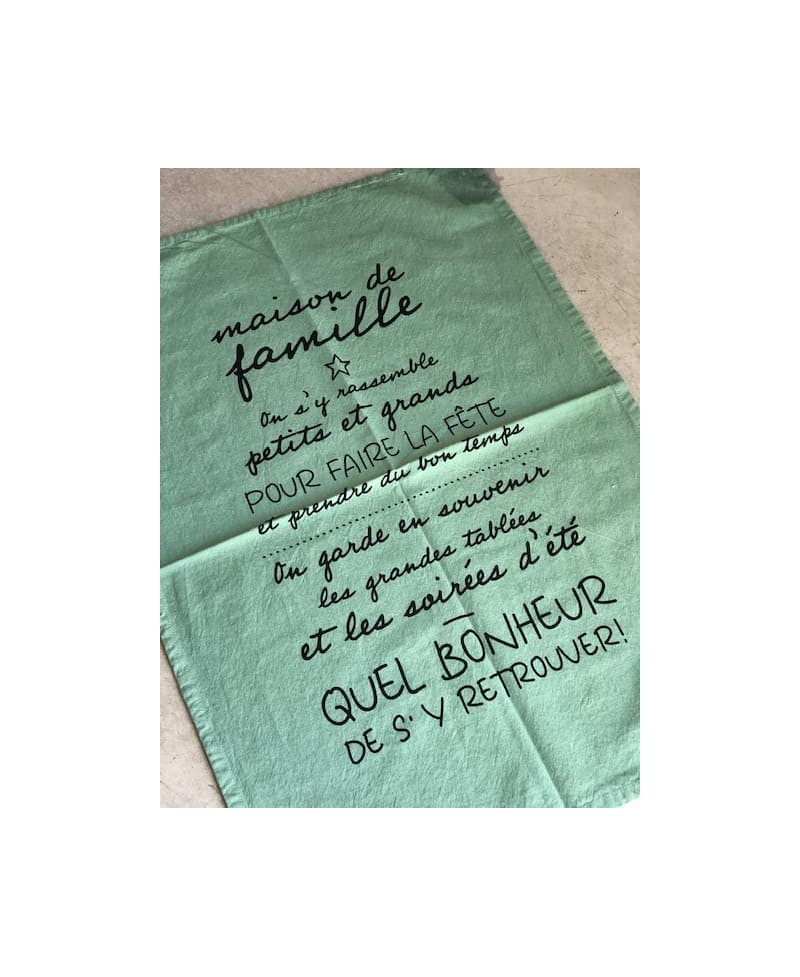 maison de
famille
On s'y rassemble
petits et grands
POUR FAIRE LA FÊTE
et prendre du bon temps
On garde en souvenir
les grandes tablées
et les soirées d'été
QUEL BONHEUR
DE S'Y RETROUVER!